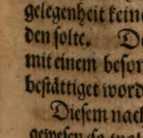 gelegenheit kein
den solte. D
mit einem beson
bestättiget word
Diesem nach
gewesen